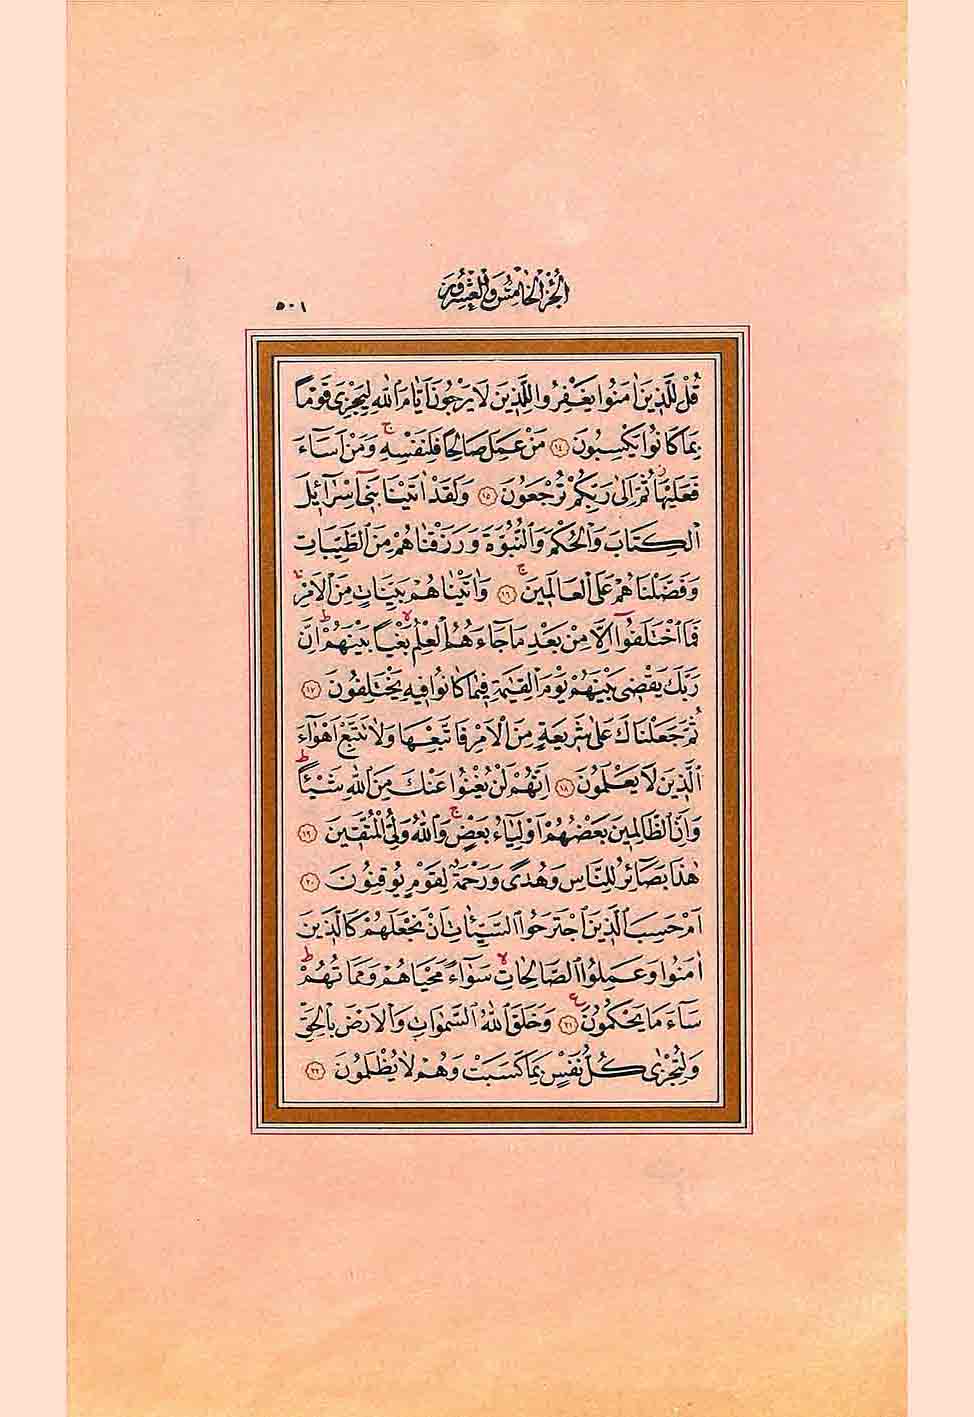 الجزء الخامس والعشرون
٥٠١
قُلْ لِلَّذِينَ اٰمَنُوا يَغْفِرُوا لِلَّذِينَ لَا يَرْجُونَ اَيَّامَ اللّٰهِ لِيَجْزِىَ قَوْمًا
بِمَا كَانُوا يَكْسِبُونَ ﴿١٤﴾ مَنْ عَمِلَ صَالِحًا فَلِنَفْسِهِ ۚ وَمَنْ اَسَآءَ
فَعَلَيْهَا ثُمَّ اِلٰى رَبِّكُمْ تُرْجَعُونَ ﴿١٥﴾ وَلَقَدْ اٰتَيْنَا بَنِىٓ اِسْرَآئِلَ
الْكِتَابَ وَالْحُكْمَ وَالنُّبُوَّةَ وَرَزَقْنَاهُمْ مِنَ الطَّيِّبَاتِ
وَفَضَّلْنَاهُمْ عَلَى الْعَالَمِينَ ۚ ﴿١٦﴾ وَاٰتَيْنَاهُمْ بَيِّنَاتٍ مِنَ الْاَمْرِ
فَمَا اخْتَلَفُٓوا اِلَّا مِنْ بَعْدِ مَا جَآءَهُمُ الْعِلْمُ ۙ بَغْيًا بَيْنَهُمْ ۜ اِنَّ
رَبَّكَ يَقْضِى بَيْنَهُمْ يَوْمَ الْقِيٰمَةِ فِيمَا كَانُوا فِيهِ يَخْتَلِفُونَ ﴿١٧﴾
ثُمَّ جَعَلْنَاكَ عَلٰى شَرِيعَةٍ مِنَ الْاَمْرِ فَاتَّبِعْهَا وَلَا تَتَّبِعْ اَهْوَآءَ
الَّذِينَ لَا يَعْلَمُونَ ﴿١٨﴾ اِنَّهُمْ لَنْ يُغْنُوا عَنْكَ مِنَ اللّٰهِ شَيْئًا
وَاِنَّ الظَّالِمِينَ بَعْضُهُمْ اَوْلِيَآءُ بَعْضٍ ۚ وَاللّٰهُ وَلِىُّ الْمُتَّقِينَ ﴿١٩﴾
هٰذَا بَصَآئِرُ لِلنَّاسِ وَهُدًى وَرَحْمَةٌ لِقَوْمٍ يُوقِنُونَ ﴿٢٠﴾
اَمْ حَسِبَ الَّذِينَ اجْتَرَحُوا السَّيِّئَاتِ اَنْ نَجْعَلَهُمْ كَالَّذِينَ
اٰمَنُوا وَعَمِلُوا الصَّالِحَاتِ ۙ سَوَآءً مَحْيَاهُمْ وَمَمَاتُهُمْ
سَآءَ مَا يَحْكُمُونَ ﴿٢١﴾ وَخَلَقَ اللّٰهُ السَّمٰوَاتِ وَالْاَرْضَ بِالْحَقِّ
وَلِتُجْزٰى كُلُّ نَفْسٍ بِمَا كَسَبَتْ وَهُمْ لَا يُظْلَمُونَ ﴿٢٢﴾